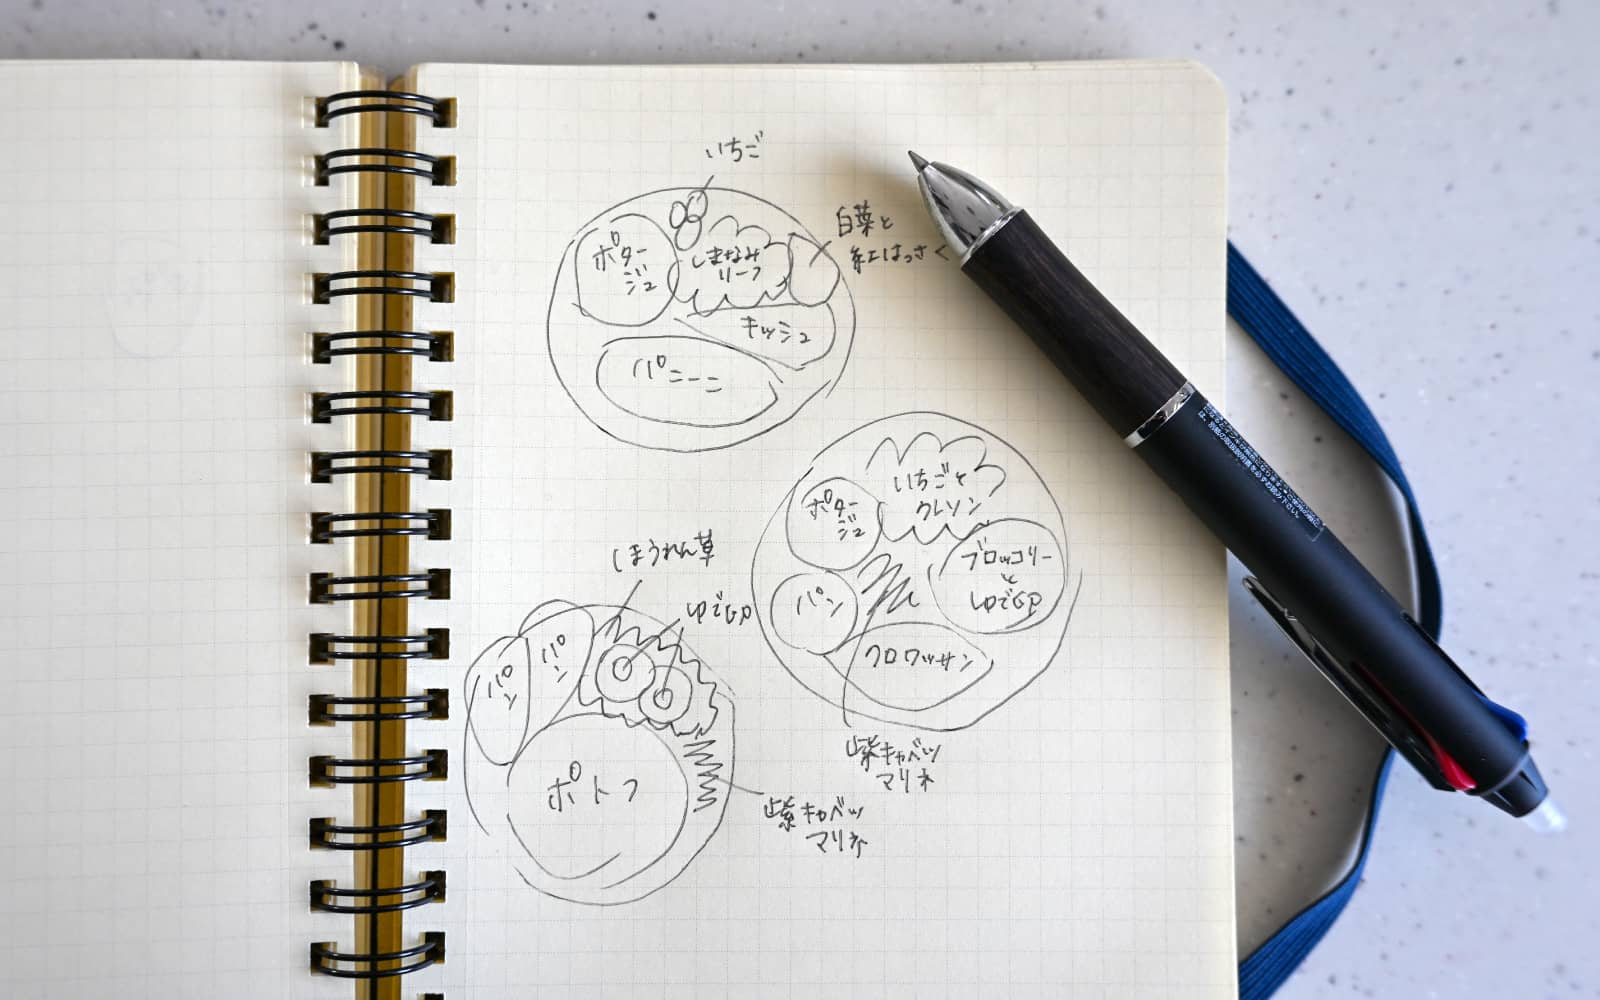 いちご
ポター
ジュ
しまなみ
リーフ
白菜と
紅はっさく
キッシュ
パニーニ
いちごと
クレソン
ポター
ジュ
ブロッコリー
と
ゆで卵
パン
クロワッサン
紫キャベツ
マリネ
ほうれん草
ゆで卵
パン
パン
ポトフ
紫キャベツ
マリネ